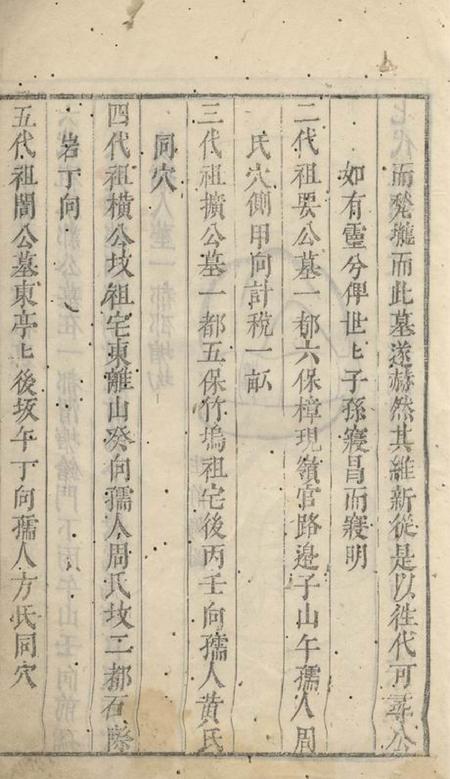 而堯壠而此墓遂赫然其維新從是以徃代可尋公
如有靈兮俾世上子孫寖昌而寖明
二代祖㚻公墓一都六保樟現嶺官路邉子山午孺人周
氏穴側甲向計稅一畝
三代祖擴公墓一都五保竹塢祖宅後丙壬向孺人黄氏
同穴
四代祖横公坟祖宅東離山癸向孺人周氏坟二都石際
岩丁向
五代祖閏公墓東亭上後坂午丁向孺人方氏同穴